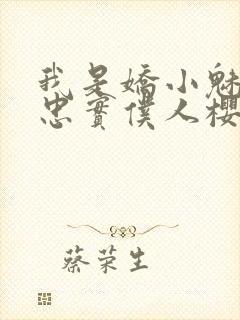 我是嬌小魅
忠實僕人櫻
蔡荣生